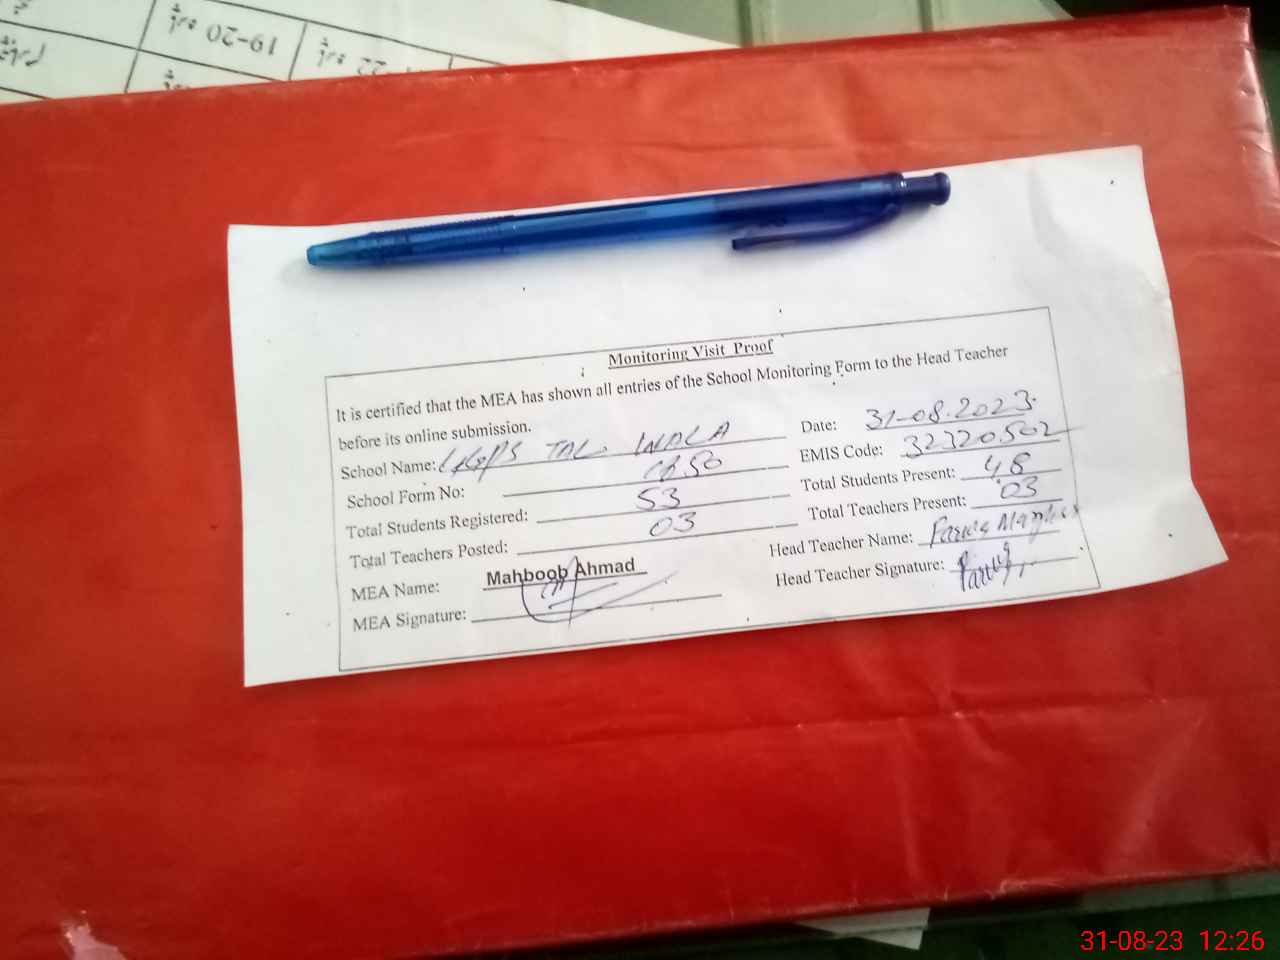 19-20
22
Monitoring Visit Proof
It is certified that the MEA has shown all entries of the School Monitoring Form to the Head Teacher
before its online submission.
Date: 31-08-2023
School Name: GGPS TAL WALA
EMIS Code: 32320502
School Form No:
Total Students Present: 48
Total Students Registered: 53
Total Teachers Present: 03
Total Teachers Posted: 03
Head Teacher Name:
MEA Name: Mahboob Ahmad
Head Teacher Signature:
MEA Signature:
31-08-23 12:26